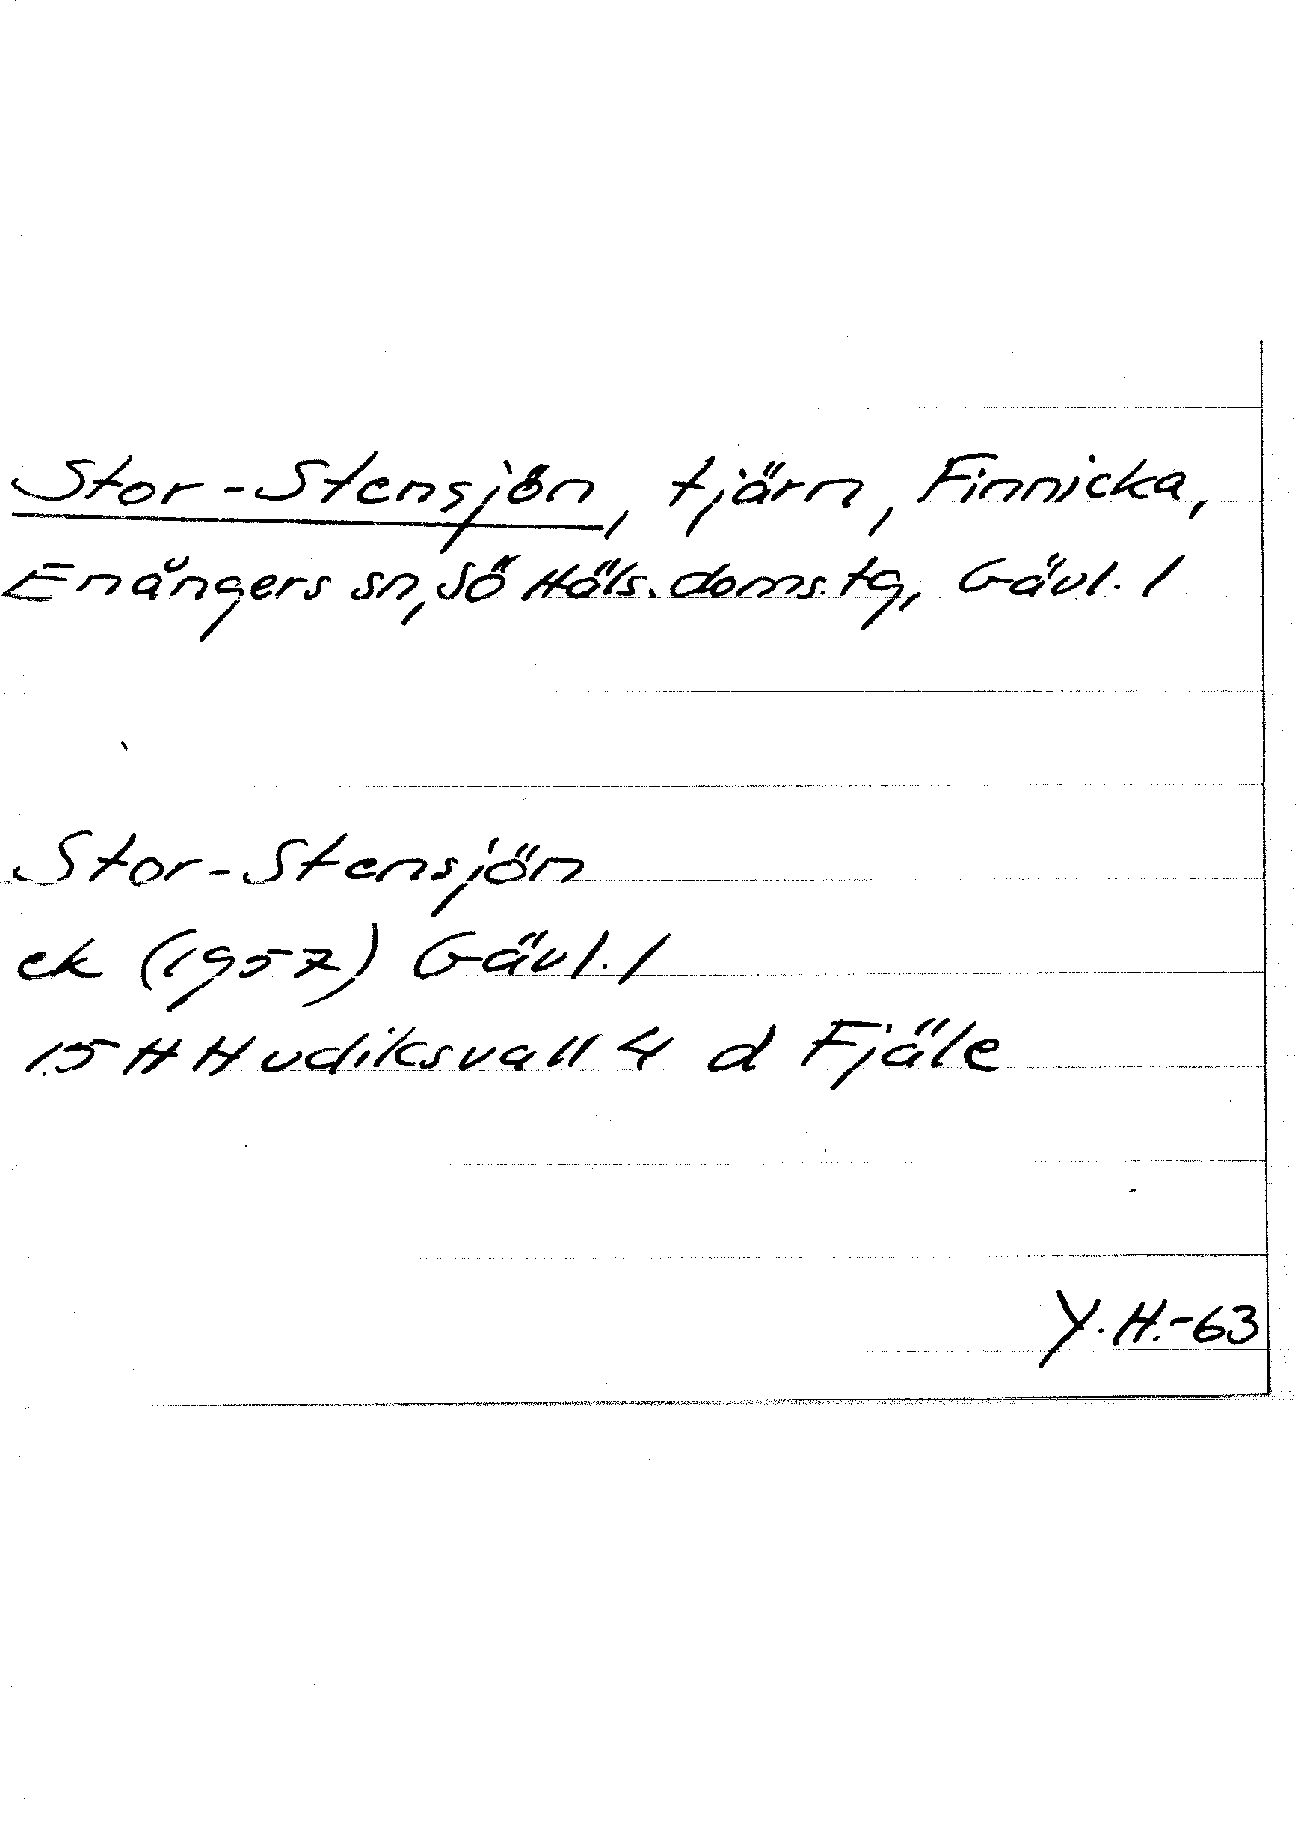 Stor-Stensjön, tjärn, Finnicka,
Enångers sn, Sö Häls. doms. tg, Gävl. l
Stor-Stensjön
ek (1957) Gävl. l
15 H Hudiksvall 4 d Fjäle
Y.H.-63